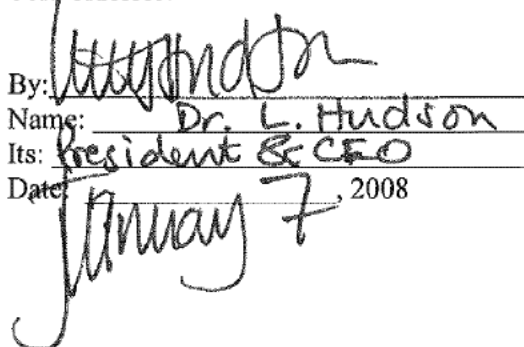 By:
Name: Dr. L. Hudson
Its: President & CEO
Date: January 7, 2008